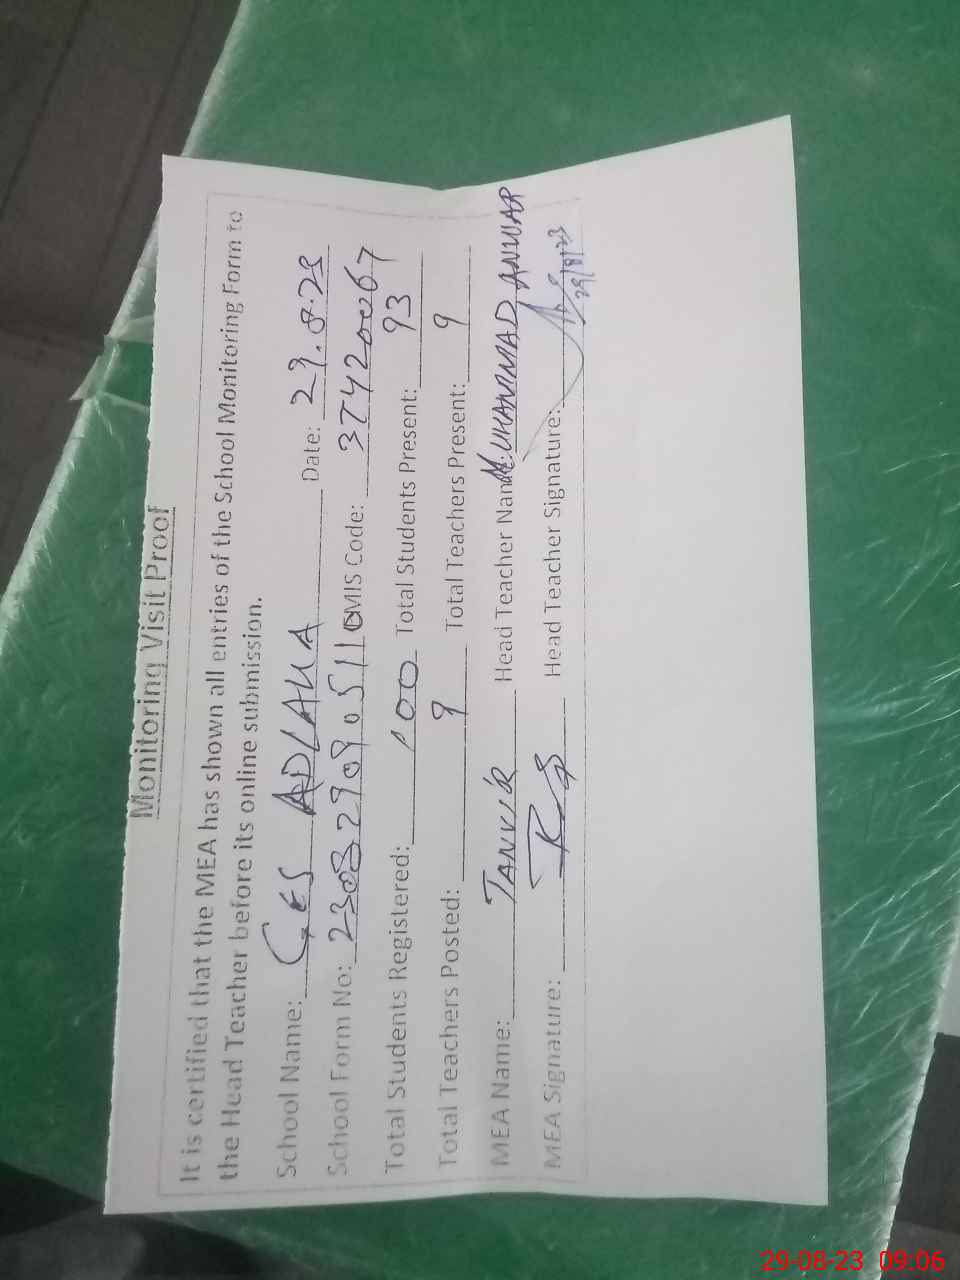 Monitoring Visit Proof
It is certified that the MEA has shown all entries of the School Monitoring Form to
the Head Teacher before its online submission.
School Name: GES ADLAHA Date: 29.8.23
School Form No: 2308290905110 EMIS Code: 37420067
Total Students Registered: 100 Total Students Present: 93
Total Teachers Posted: 9 Total Teachers Present: 9
MEA Name: TANVIR Head Teacher Name: MUHAMMAD ANWAR
MEA Signature: Head Teacher Signature:
29/8/23
29-08-23 09:06